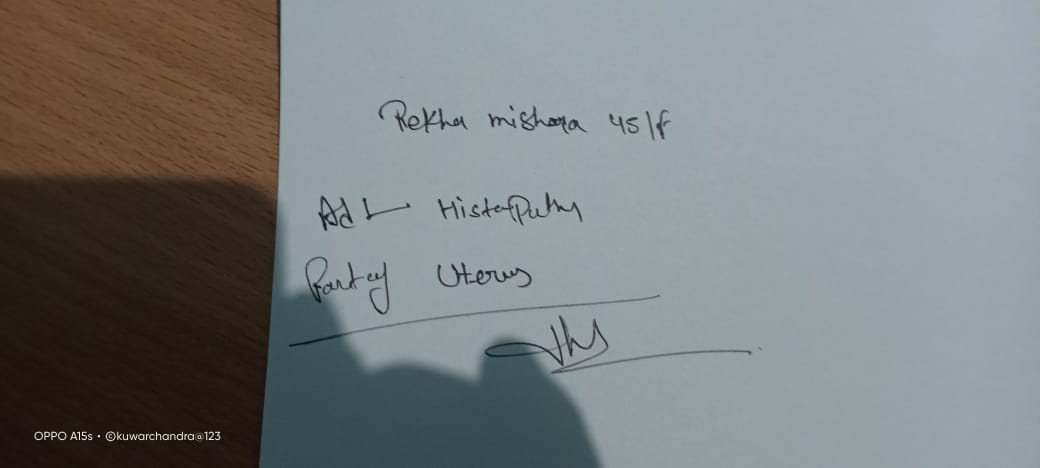 Rekha mishra 45/f
Ad Histopathy
Part of Uterus
OPPO A15s • ©kuwarchandra@123